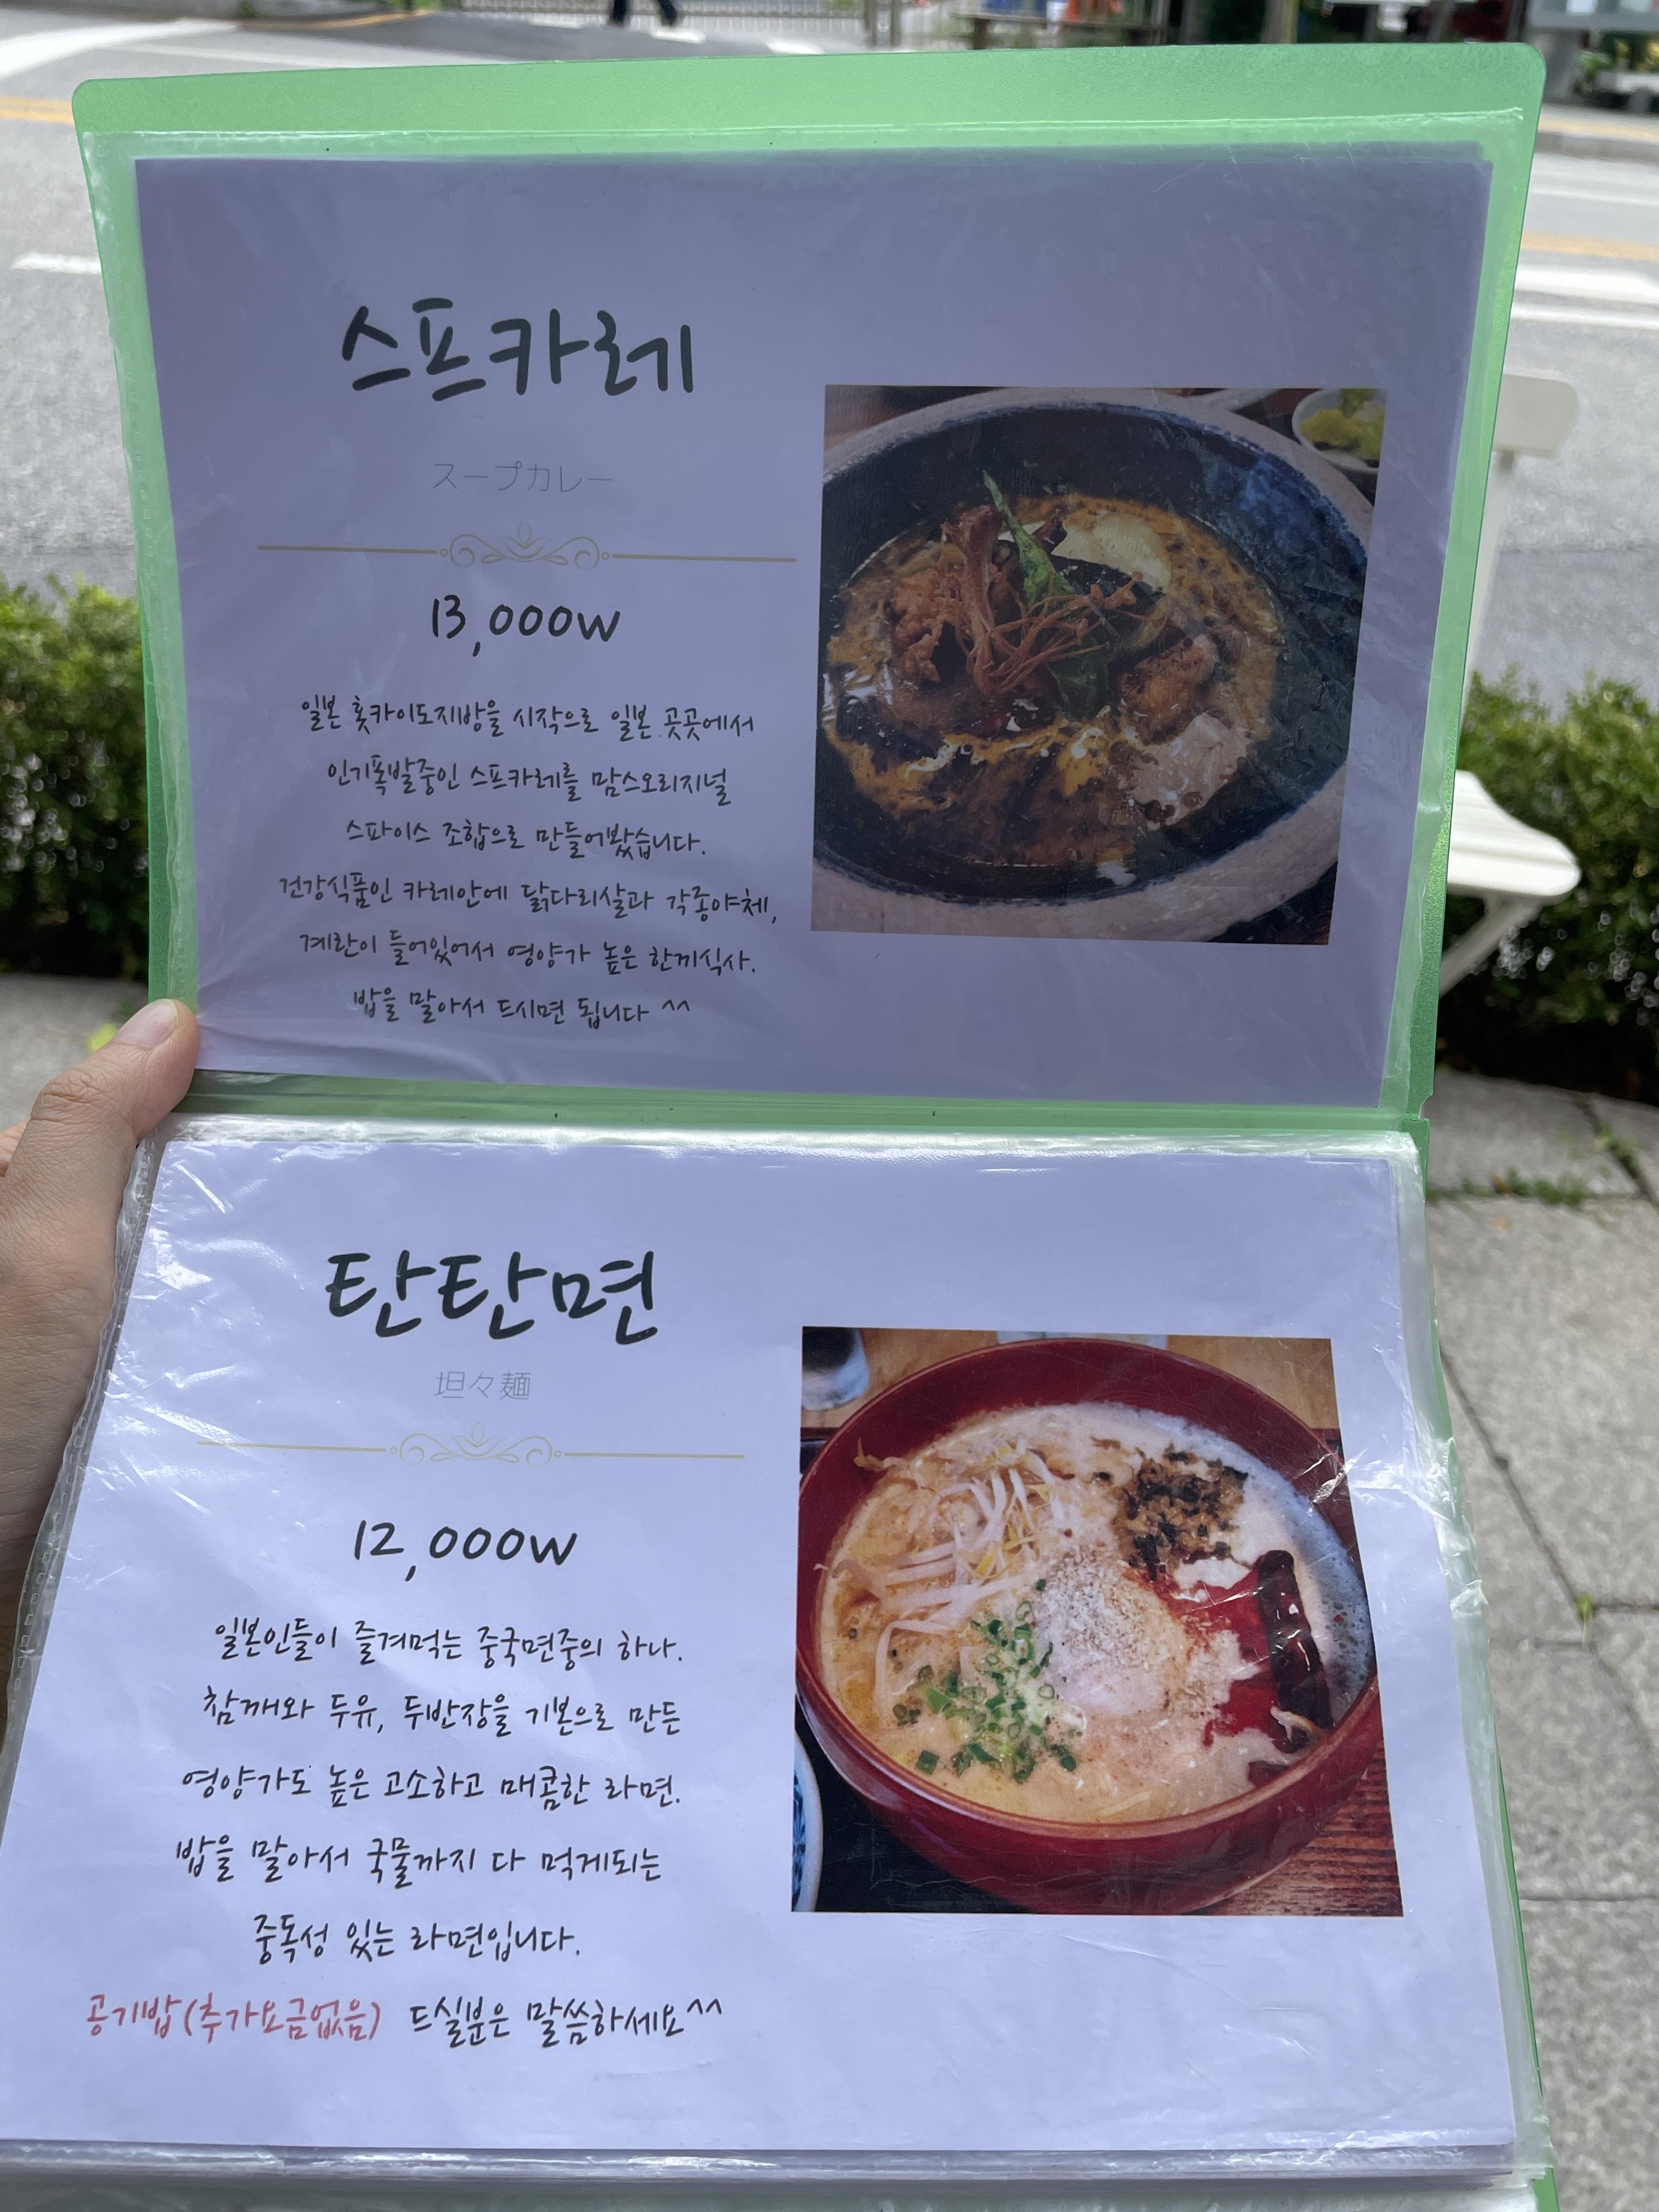 스프카레
スープカレー
13,000w
일본 홋카이도지방을 시작으로 일본 곳곳에서
인기폭발중인 스프카레를 맘스오리지널
스파이스 조합으로 만들어봤습니다.
건강식품인 카레안에 닭다리살과 각종야체,
계란이 들어있어서 영양가 높은 한끼식사.
밥을 말아서 드시면 됩니다 ^^
탄탄면
坦々麺
12,000w
일본인들이 즐겨먹는 중국면중의 하나.
참깨와 두유, 두반장을 기본으로 만든
영양가도 높은 고소하고 매콤한 라면.
밥을 말아서 국물까지 다 먹게되는
중독성 있는 라면입니다.
공기밥(추가요금없음) 드실분은 말씀하세요^^